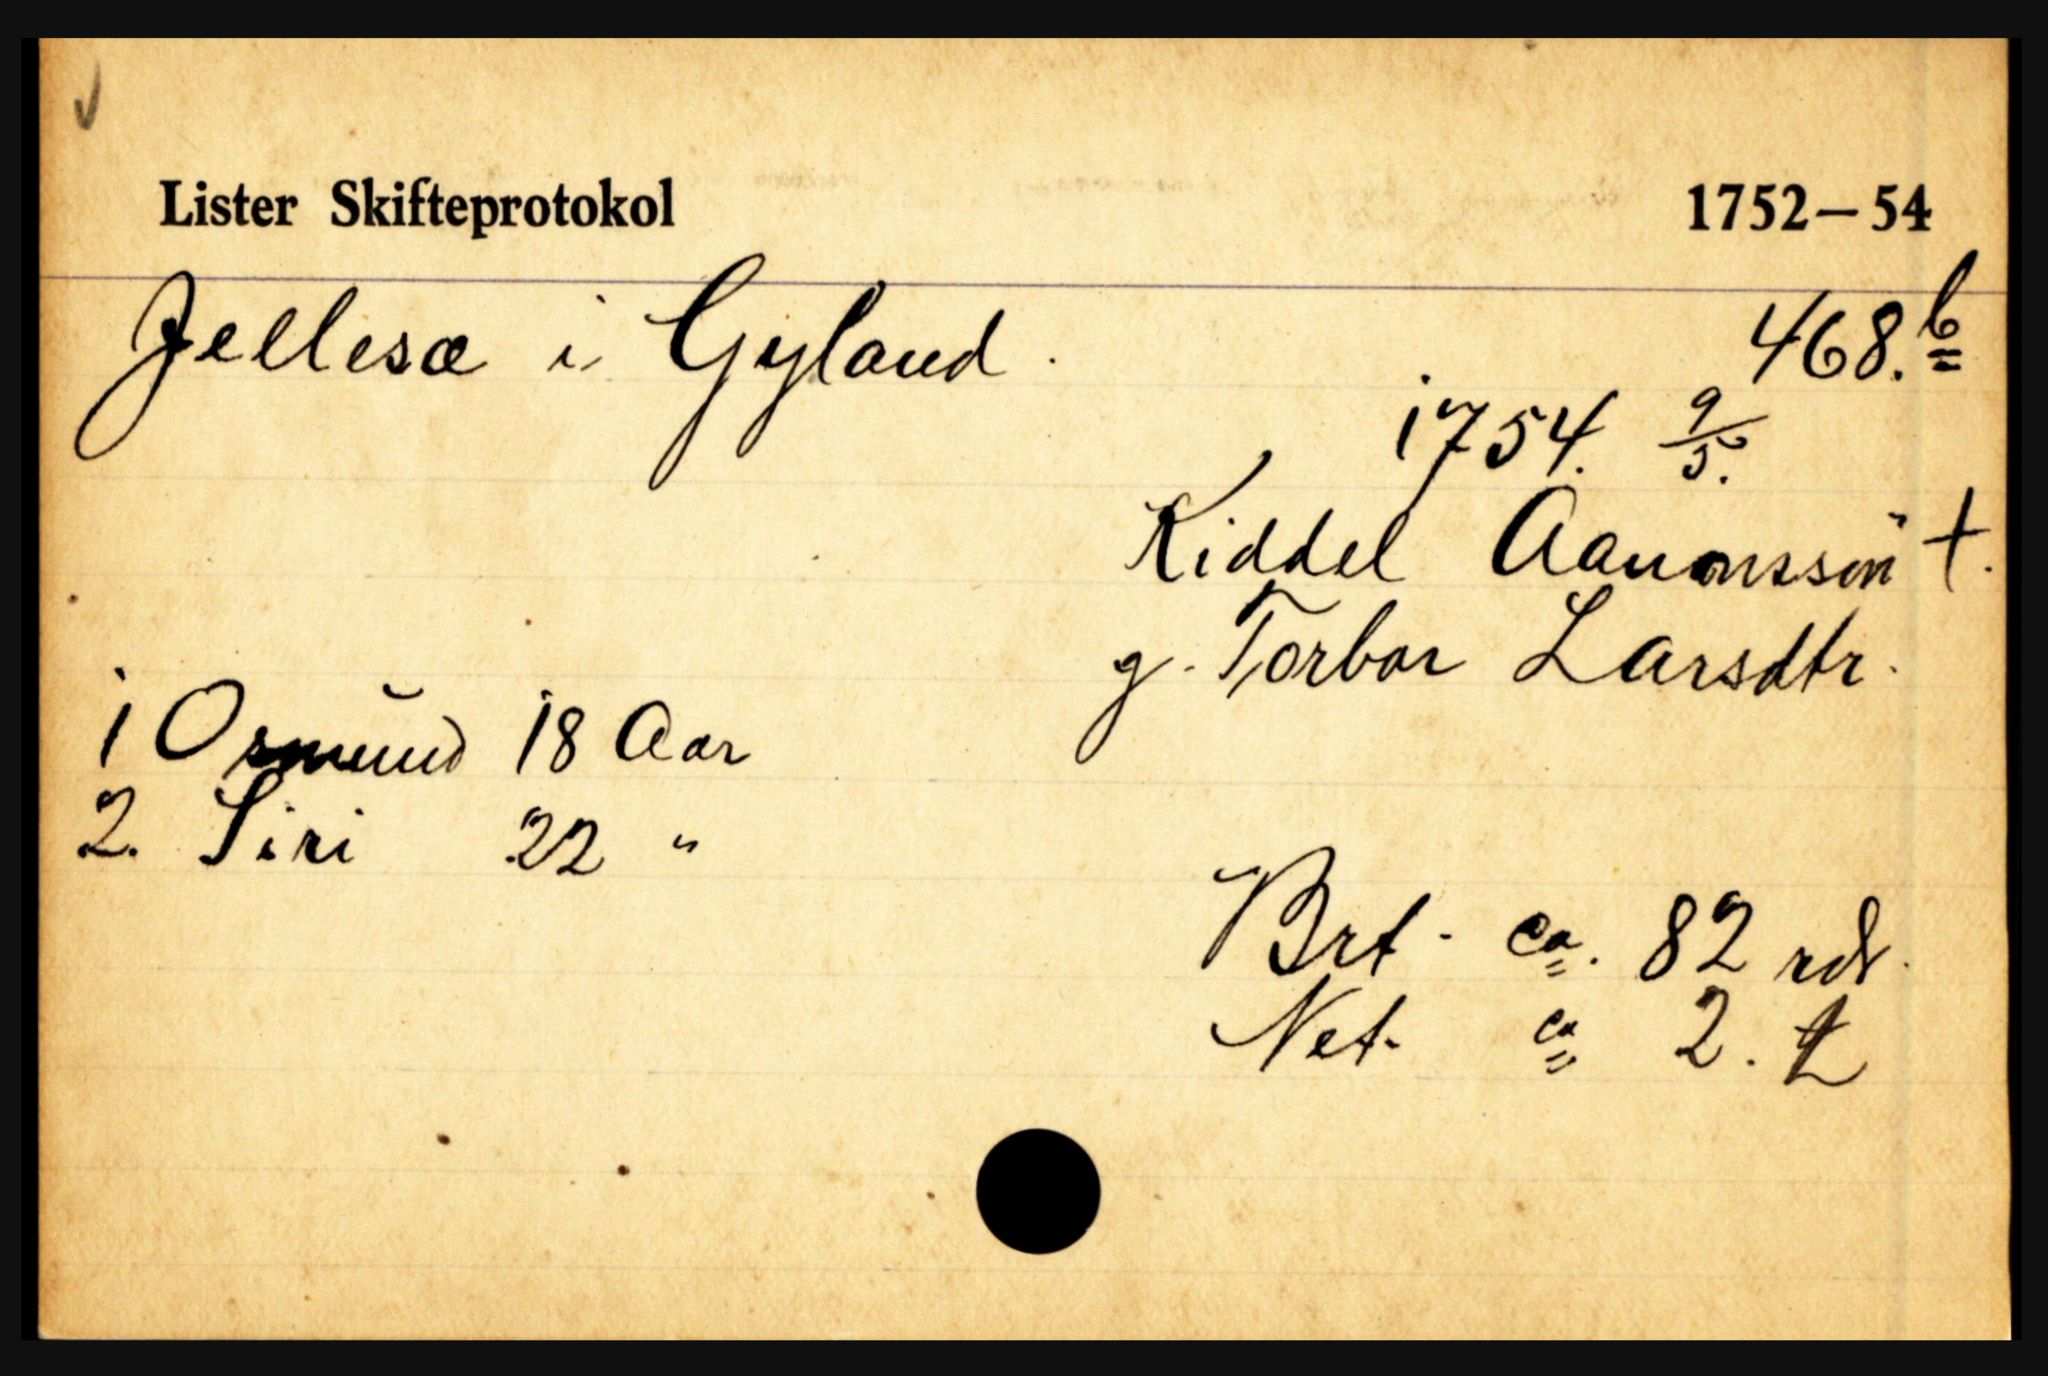 Lister Skifteprotokol 1752–54
Jellesæ i Gyland. 468.b
1754. 9/5.
Kiddel Aanonssøn †.
g. Torbor Larsdtr.
1 Osmund 18 Aar
2. Siri 22 "
Brt. ca. 82 rdr.
Net. ca 2.